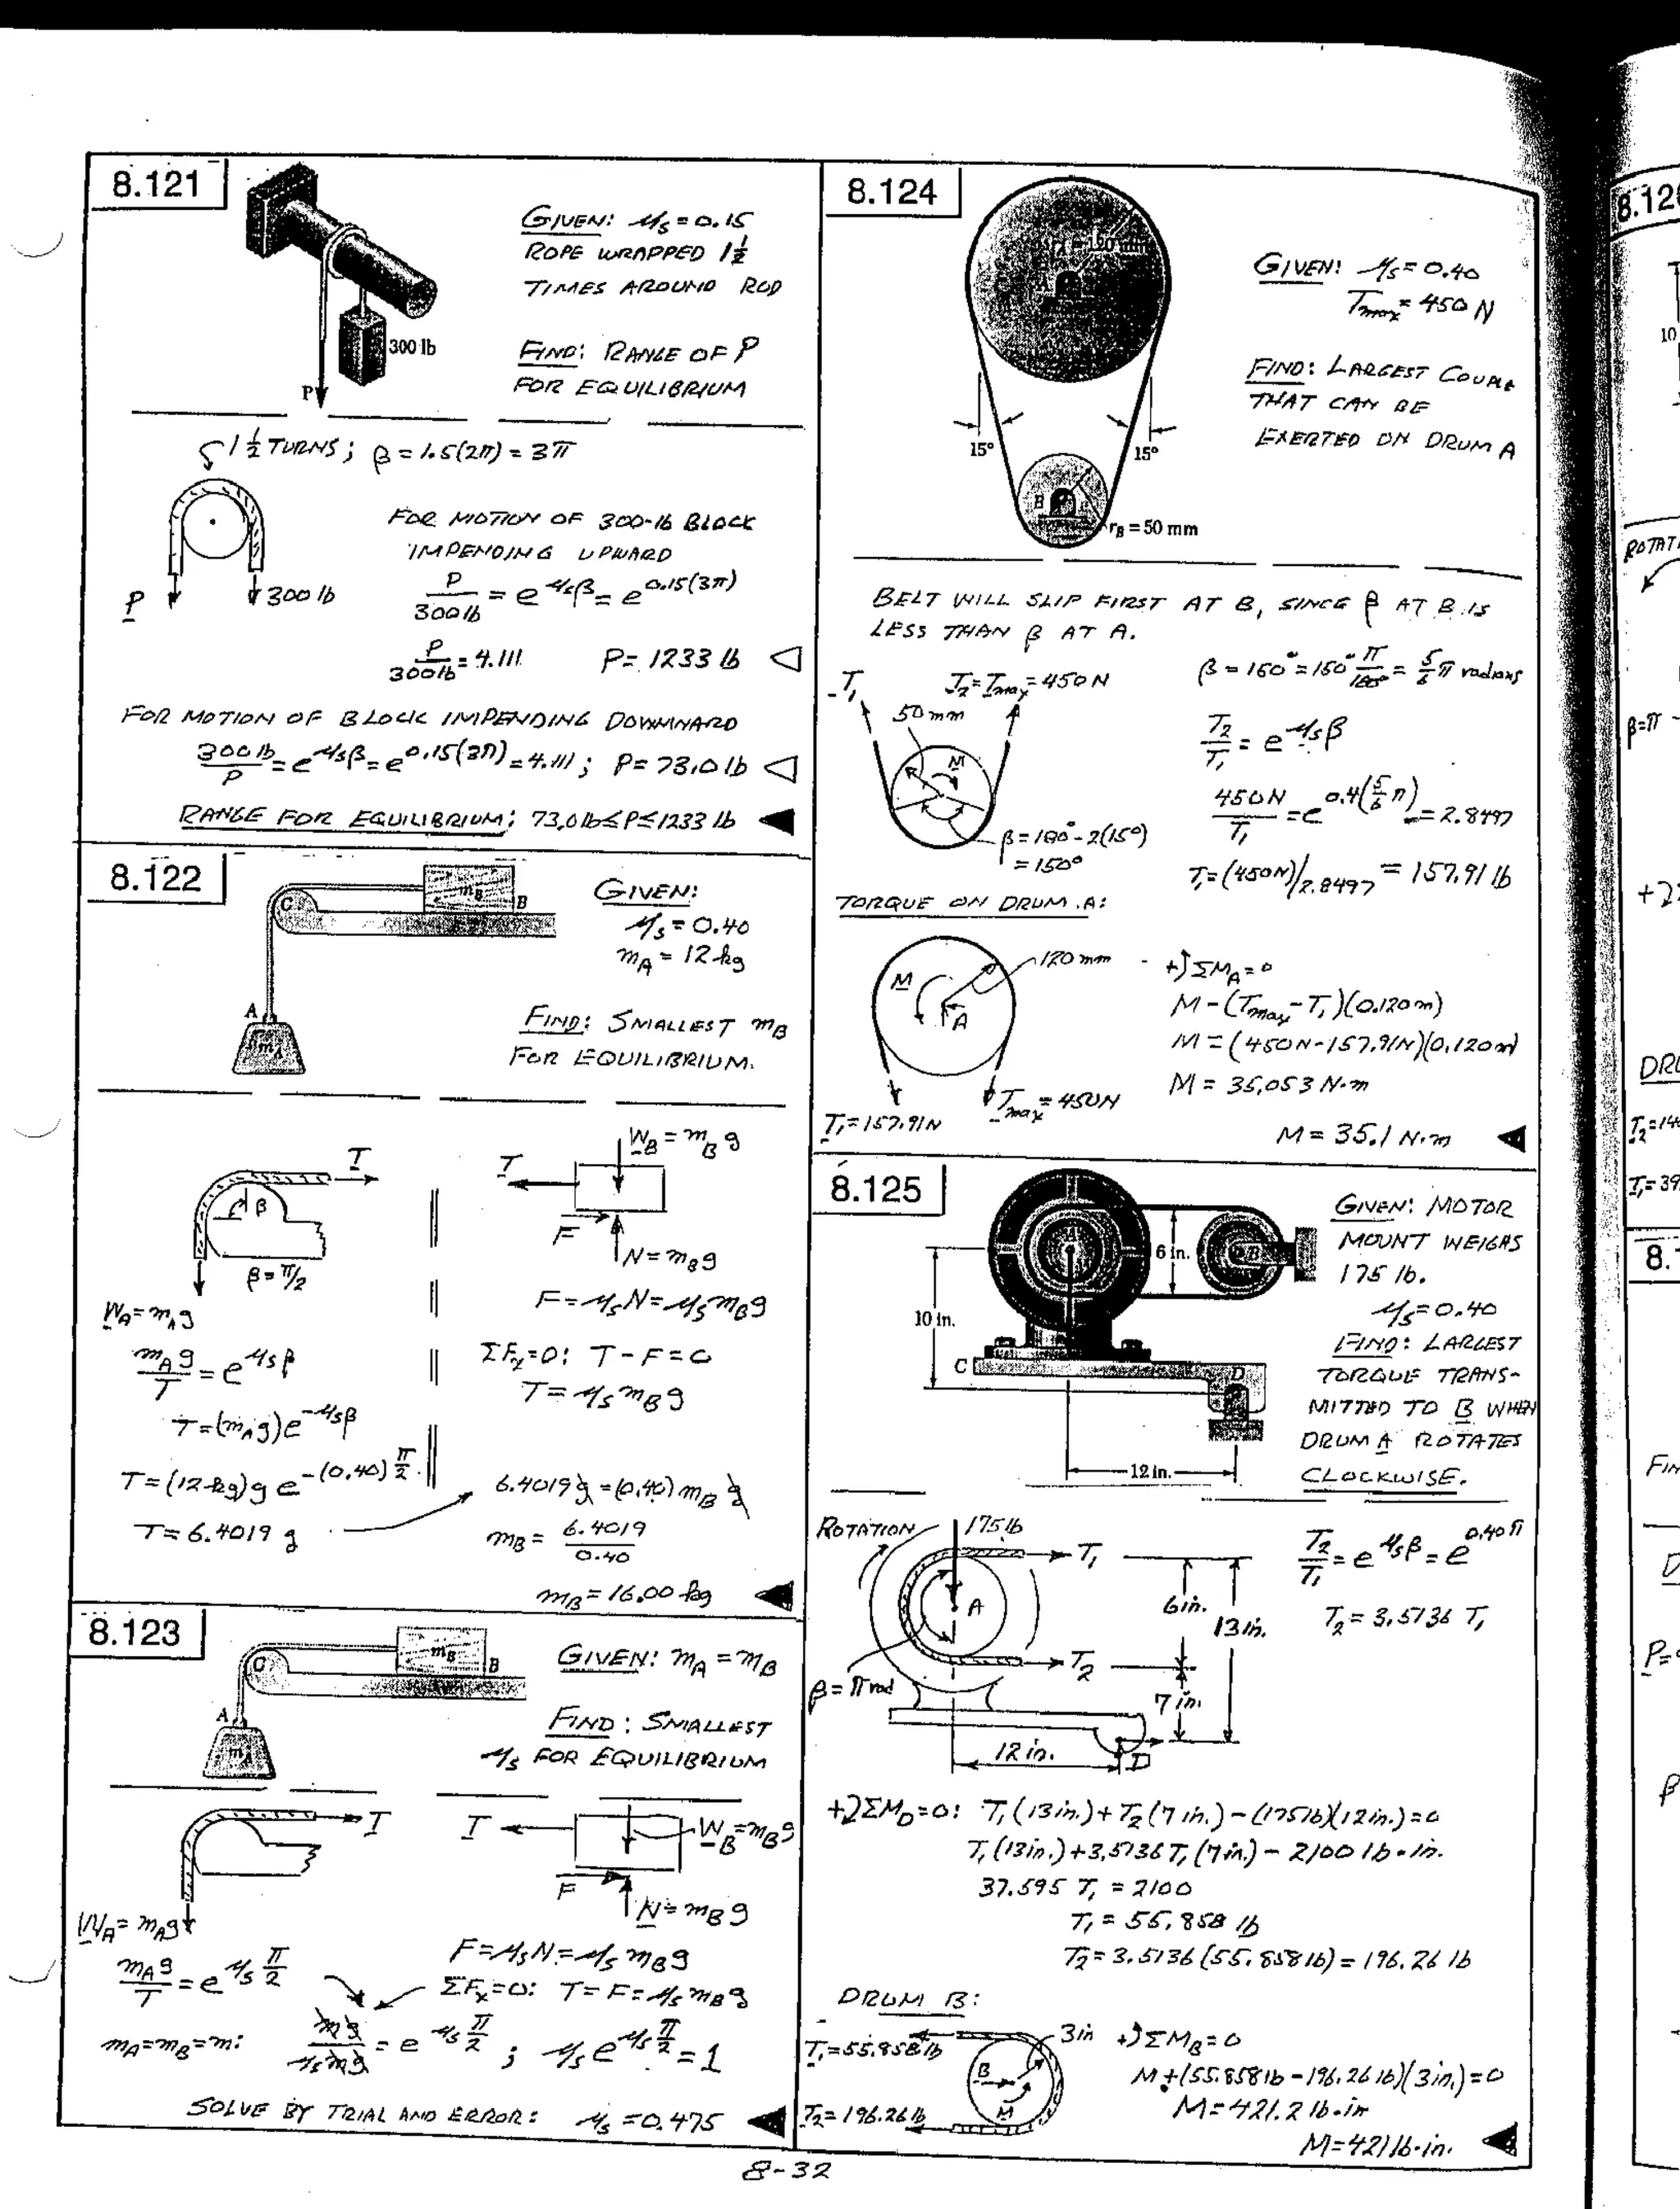 8.121
GIVEN: μs = 0.15
ROPE WRAPPED 1½
TIMES AROUND ROD
FIND: RANGE OF P
FOR EQUILIBRIUM
300 lb
P
1½ TURNS; β = 1.5(2π) = 3π
FOR MOTION OF 300-lb BLOCK
IMPENDING UPWARD
P
300 lb
P/300 lb = e^μsβ = e^0.15(3π)
P/300 lb = 4.111 P = 1233 lb
FOR MOTION OF BLOCK IMPENDING DOWNWARD
300 lb/P = e^μsβ = e^0.15(3π) = 4.111; P = 73.0 lb
RANGE FOR EQUILIBRIUM; 73.0 lb ≤ P ≤ 1233 lb
8.122
C
mB
B
A
mA
GIVEN:
μs = 0.40
mA = 12 kg
FIND: SMALLEST mB
FOR EQUILIBRIUM.
T
β
β = π/2
WA = mAg
T
WB = mBg
F
N = mBg
F = μsN = μsmBg
mAg/T = e^μsβ
ΣFx = 0: T - F = 0
T = μsmBg
T = (mAg)e^-μsβ
T = (12 kg)g e^-(0.40)π/2
6.4019 g = (0.40) mB g
T = 6.4019 g
mB = 6.4019/0.40
mB = 16.00 kg
8.123
C
mB
B
A
mA
GIVEN: mA = mB
FIND: SMALLEST
μs FOR EQUILIBRIUM
T
T
WB = mBg
F
N = mBg
WA = mAg
F = μsN = μsmBg
mAg/T = e^μs π/2
ΣFx = 0: T = F = μsmBg
mA = mB = m: mg/μsmg = e^μs π/2; μs e^μs π/2 = 1
SOLVE BY TRIAL AND ERROR: μs = 0.475
8.124
A
B
15°
15°
rB = 50 mm
GIVEN: μs = 0.40
Tmax = 450 N
FIND: LARGEST COUPLE
THAT CAN BE
EXERTED ON DRUM A
BELT WILL SLIP FIRST AT B, SINCE β AT B IS
LESS THAN β AT A.
T1
T2 = Tmax = 450 N
50 mm
M
β = 180° - 2(15°)
= 150°
β = 150° = 150° π/180° = 5/6 π radians
T2/T1 = e^μsβ
450 N/T1 = e^0.4(5/6 π) = 2.8497
T1 = (450 N)/2.8497 = 157.91 lb
TORQUE ON DRUM A:
M
120 mm
A
T1 = 157.91 N
Tmax = 450 N
+ΣMA = 0
M - (Tmax - T1)(0.120 m)
M = (450 N - 157.91 N)(0.120 m)
M = 35.053 N·m
M = 35.1 N·m
8.125
A
6 in.
B
10 in.
C
D
12 in.
GIVEN: MOTOR
MOUNT WEIGHS
175 lb.
μs = 0.40
FIND: LARGEST
TORQUE TRANS-
MITTED TO B WHEN
DRUM A ROTATES
CLOCKWISE.
ROTATION
175 lb
T1
A
T2
β = π rad
6 in.
13 in.
7 in.
12 in.
D
T2/T1 = e^μsβ = e^0.40π
T2 = 3.5136 T1
+ΣMD = 0: T1(13 in.) + T2(7 in.) - (175 lb)(12 in.) = 0
T1(13 in.) + 3.5136 T1(7 in.) - 2100 lb·in.
37.595 T1 = 2100
T1 = 55.858 lb
T2 = 3.5136 (55.858 lb) = 196.26 lb
DRUM B:
T1 = 55.858 lb
3 in
B
M
T2 = 196.26 lb
+ΣMB = 0
M + (55.858 lb - 196.26 lb)(3 in.) = 0
M = 421.2 lb·in
M = 421 lb·in.
8-32
10
β = π